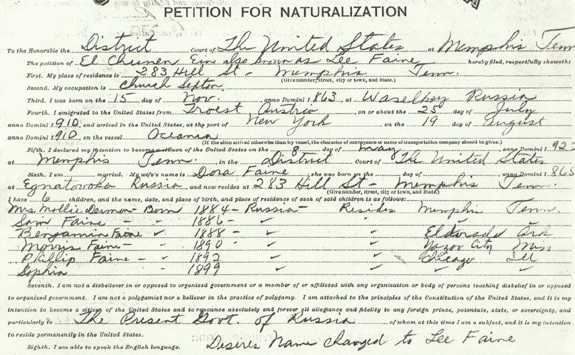 PETITION FOR NATURALIZATION
To the Honorable the District Court of The United States at Memphis Tenn
The petition of El Chunen Ein also known as Lee Faine hereby filed, respectfully showeth:
First. My place of residence is 283 Hill St - Memphis Tenn.
(Give number, street, city or town, and State.)
Second. My occupation is Church Sexton
Third. I was born on the 15 day of Nov. anno Domini 1 863 at Russia
Fourth. I emigrated to the United States from Triest Austria on or about the 25 day of July
anno Domini 1 910, and arrived in the United States, at the port of New York on the 19 day of August
anno Domini 1 910, on the vessel Oceania
(If the alien arrived otherwise than by vessel, the character of conveyance or name of transportation company should be given.)
Fifth. I declared my intention to become a citizen of the United States on the 8 day of anno Domini 1 92
at Memphis Tenn. in the District Court of The United States
Sixth. I am married. My wife's name is Dora Faine anno Domini 1 865
at Russia, and now resides at 283 Hill St - Memphis Tenn.
(Give number, street, city or town, and State.)
I have 6 children, and the name, date, and place of birth, and place of residence of each of said children is as follows:
Mrs. Mollie - Born 1884 - Russia - Resides Memphis Tenn.
Sam Faine - 1886 -
Benjamin Faine 1888 - Eldorado Ark
Morris Faine - 1890 - Yazoo City Miss
Phillip Faine - 1892 Chicago Ill
Sophia 1899
Seventh. I am not a disbeliever in or opposed to organized government or a member of or affiliated with any organization or body of persons teaching disbelief in or opposed
to organized government. I am not a polygamist nor a believer in the practice of polygamy. I am attached to the principles of the Constitution of the United States, and it is my
intention to become a citizen of the United States and to renounce absolutely and forever all allegiance and fidelity to any foreign prince, potentate, state, or sovereignty, and
particularly to The Present Govt. of Russia of whom at this time I am a subject, and it is my intention
to reside permanently in the United States.
Eighth. I am able to speak the English language. Desires Name changed to Lee Faine